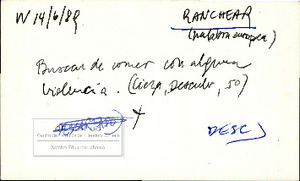 W 14/6/89
RANCHEAR
(palabra europea)
Buscar de comer con alguna
violencia. (Cieza, Descubr, 50)
DESC